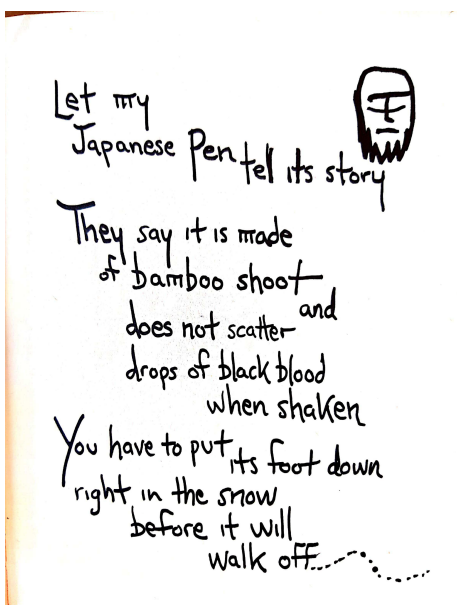 Let my
Japanese Pen tel its story
They say it is made
of bamboo shoot
and
does not scatter
drops of black blood
when shaken
You have to put its foot down
right in the snow
before it will
walk off